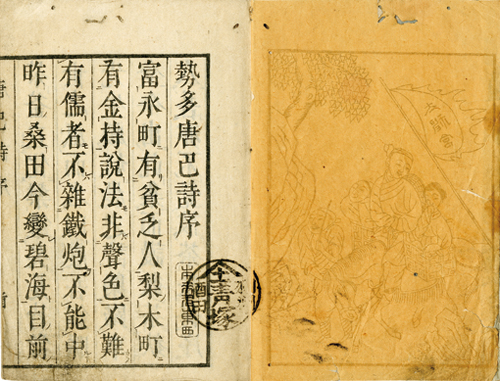 勢多唐巴詩序
富永町有貧乏人梨木町
有金持說法非聲色不難
有儒者不雜鐵炮不能中
昨日桑田今變碧海目前
唐巴詩序
青塚
酒田